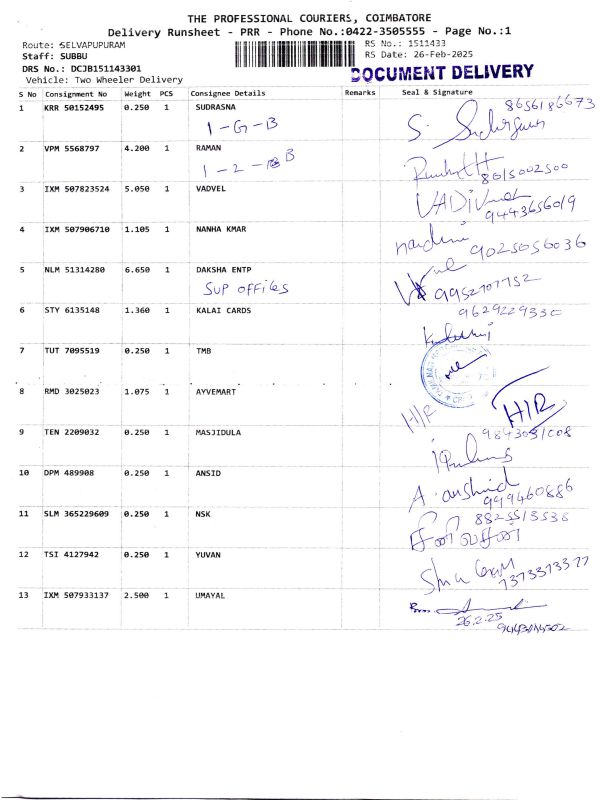 THE PROFESSIONAL COURIERS, COIMBATORE
Delivery Runsheet - PRR - Phone No.:0422-3505555 - Page No.:1
Route: SELVAPUPURAM RS No.: 1511433
Staff: SUBBU RS Date: 26-Feb-2025
DRS No.: DCJB151143301
Vehicle: Two Wheeler Delivery
DOCUMENT DELIVERY
S No Consignment No Weight PCS Consignee Details Remarks Seal & Signature
1 KRR 50152495 0.250 1 SUDRASNA 8656186673
1-G-B
2 VPM 5568797 4.200 1 RAMAN
8615002500
3 IXM 507823524 5.050 1 VADVEL
9443656019
4 IXM 507906710 1.105 1 NANHA KMAR
9025056036
5 NLM 51314280 6.650 1 DAKSHA ENTP
SUP OFFiLES 9952707752
6 STY 6135148 1.360 1 KALAI CARDS
7 TUT 7095519 0.250 1 TMB
8 RMD 3025023 1.075 1 AYVEMART
H/R H/R
9 TEN 2209032 0.250 1 MASJIDULA
10 DPM 489908 0.250 1 ANSID
A. anshid
999460886
11 SLM 365229609 0.250 1 NSK
8825513538
12 TSI 4127942 0.250 1 YUVAN
13 IXM 507933137 2.500 1 UMAYAL
26.2.25